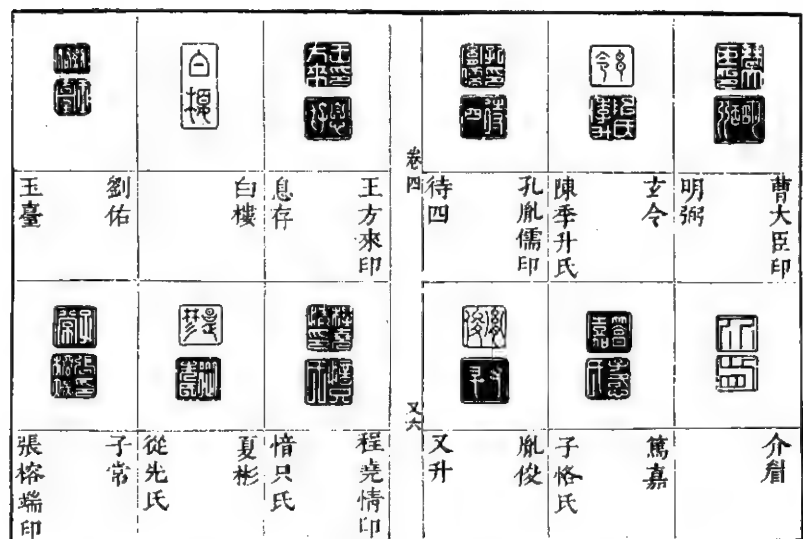 曹大臣印
明弼
玄令
陳季升氏
孔胤儒印
待四
介眉
篤嘉
子恪氏
胤俊
又升
卷四
又六
王方來印
息存
白樓
白樓
劉佑
玉臺
程堯情印
愔只氏
夏彬
從先氏
子常
張榕端印